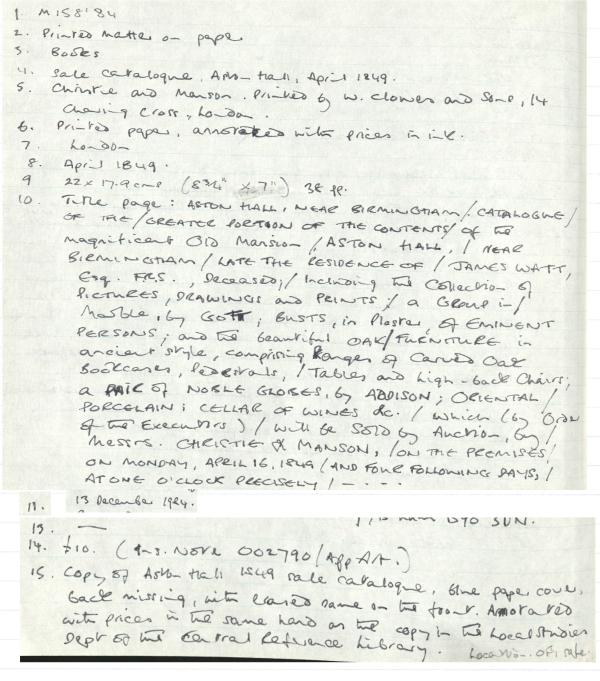 1. M158'84
2. Printed matter on paper
3. Books
4. Sale catalogue, Aston Hall, April 1849.
5. Christie and Manson. Printed by W. Clowes and Sons, 14
Charing Cross, London.
6. Printed paper, annotated with prices in ink.
7. London
8. April 1849.
9 22 x 17.9 cms (8¾" x 7") 38 pp.
10. Title page: ASTON HALL, NEAR BIRMINGHAM / CATALOGUE /
OF THE / GREATER PORTION OF THE CONTENTS / of the
magnificent Old Mansion / ASTON HALL, / NEAR
BIRMINGHAM / LATE THE RESIDENCE OF / JAMES WATT,
Esq. F.R.S., Deceased; / Including the Collection of
PICTURES, DRAWINGS and PRINTS; / a Group in /
Marble, by GOTT; BUSTS, in Plaster, OF EMINENT
PERSONS; and the beautiful OAK / FURNITURE in
ancient style, comprising Ranges of Carved Oak
Bookcases, Pedestals, / Tables and high-back Chairs;
a PAIR of NOBLE GLOBES, by ADDISON; ORIENTAL /
PORCELAIN; CELLAR OF WINES &c. / Which (by Order
of the Executors) / Will be SOLD by Auction, by /
Messrs. CHRISTIE & MANSON, / ON THE PREMISES /
ON MONDAY, APRIL 16, 1849 / AND FOUR FOLLOWING DAYS, /
AT ONE O'CLOCK PRECISELY / - - - -
11. 13 December 1984.
13. —
SUN.
14. £10. (Ins. Note 002790/App Art.)
15. Copy of Aston Hall 1849 sale catalogue, blue paper cover,
back missing, with erased name on the front. Annotated
with prices in the same hand as the copy in the Local Studies
Dept of the Central Reference Library. Location. Off. safe.